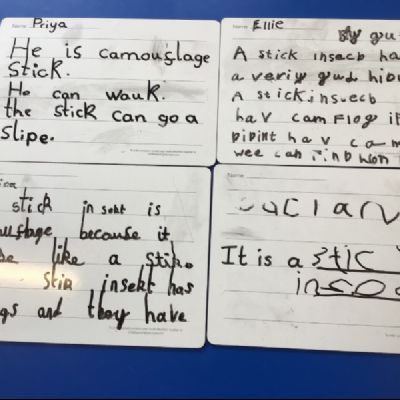 Name Priya
He is camouslage
stick.
He can wauk.
the stick can go a
slipe.
Name Ellie
A stick insecb ha
a veriy gud hibi
A stick insuecb
hav camflog it
DiDint hav cam
wee can find
ina
stick in seht is
uflage because it
e like a stik.
stin insekt has
gs and they have
Name
It is a stic
insec